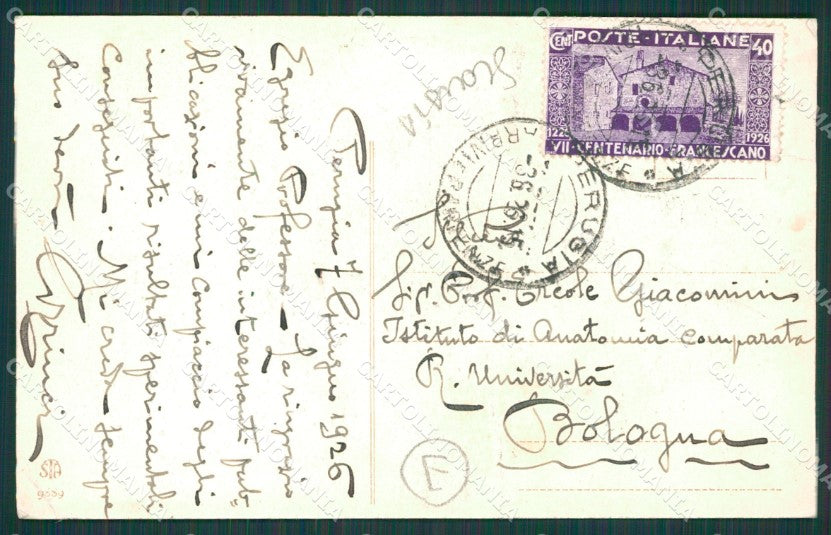 Perugia 7 Giugno 1926
Egregio Professore – La ringrazio
vivamente delle interessanti pub-
blicazioni e mi compiaccio degli
importanti risultati sperimentali
conseguiti. Mi creda sempre
suo dev.
POSTE·ITALIANE
CENT 40
1226 1926
VII·CENTENARIO·FRANCESCANO
PERUGIA
Sig. Prof. Ercole Giacomini
Istituto di Anatomia comparata
R. Università
Bologna
SIA
CARTOLINOMANIA